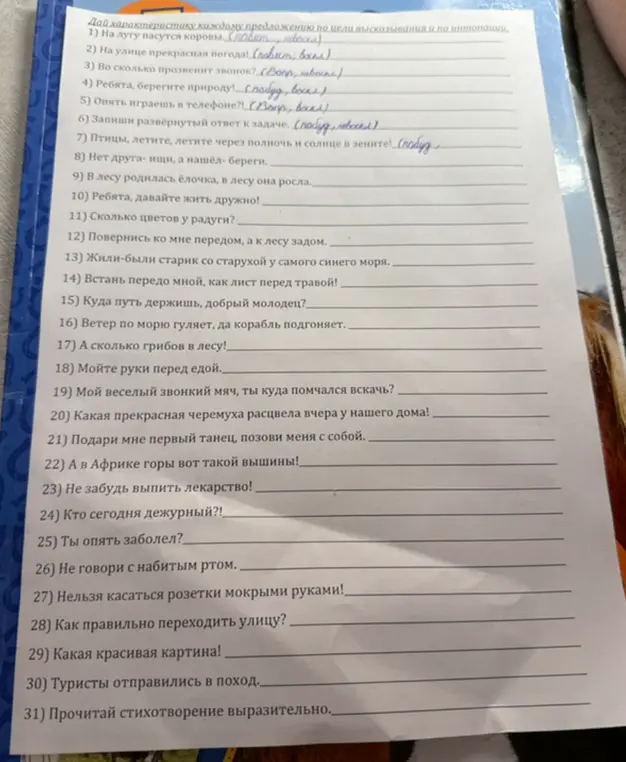 Дай характеристику каждому предложению по цели высказывания и по интонации.
1) На лугу пасутся коровы. (повест., невоскл)
2) На улице прекрасная погода! (повест, воскл)
3) Во сколько прозвенит звонок? (Вопр., невоскл.)
4) Ребята, берегите природу!.. (побуд., воскл.)
5) Опять играешь в телефоне?!. (Вопр., воскл)
6) Запиши развёрнутый ответ к задаче. (побуд, невоскл)
7) Птицы, летите, летите через полночь и солнце в зените! (побуд,
8) Нет друга- ищи, а нашёл- береги.
9) В лесу родилась ёлочка, в лесу она росла.
10) Ребята, давайте жить дружно!
11) Сколько цветов у радуги?
12) Повернись ко мне передом, а к лесу задом.
13) Жили-были старик со старухой у самого синего моря.
14) Встань передо мной, как лист перед травой!
15) Куда путь держишь, добрый молодец?
16) Ветер по морю гуляет, да корабль подгоняет.
17) А сколько грибов в лесу!
18) Мойте руки перед едой.
19) Мой веселый звонкий мяч, ты куда помчался вскачь?
20) Какая прекрасная черемуха расцвела вчера у нашего дома!
21) Подари мне первый танец, позови меня с собой.
22) А в Африке горы вот такой вышины!
23) Не забудь выпить лекарство!
24) Кто сегодня дежурный?!
25) Ты опять заболел?
26) Не говори с набитым ртом.
27) Нельзя касаться розетки мокрыми руками!
28) Как правильно переходить улицу?
29) Какая красивая картина!
30) Туристы отправились в поход.
31) Прочитай стихотворение выразительно.